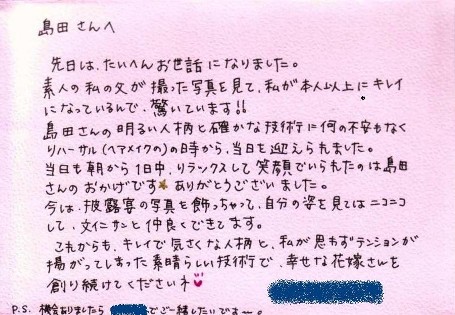 島田さんへ
先日は、たいへんお世話になりました。
素人の私の父が撮った写真を見て、私が本人以上にキレイ
になっているんで、驚いています!!
島田さんの明るい人柄と確かな技術に何の不安もなく
リハーサル(ヘアメイクの)の時から、当日を迎えられました。
当日も朝から1日中、リラックスして笑顔でいられたのは島田
さんのおかげです★ ありがとうございました。
今は、披露宴の写真を飾っちゃって、自分の姿を見てはニコニコ
して、文仁サンと仲良くできてます。
これからも、キレイで気さくな人柄と、私が思わずテンションが
揚がってしまった素晴らしい技術で、幸せな花嫁さんを
創り続けてくださいネ
P.S. 機会ありましたら でご一緒したいですー。